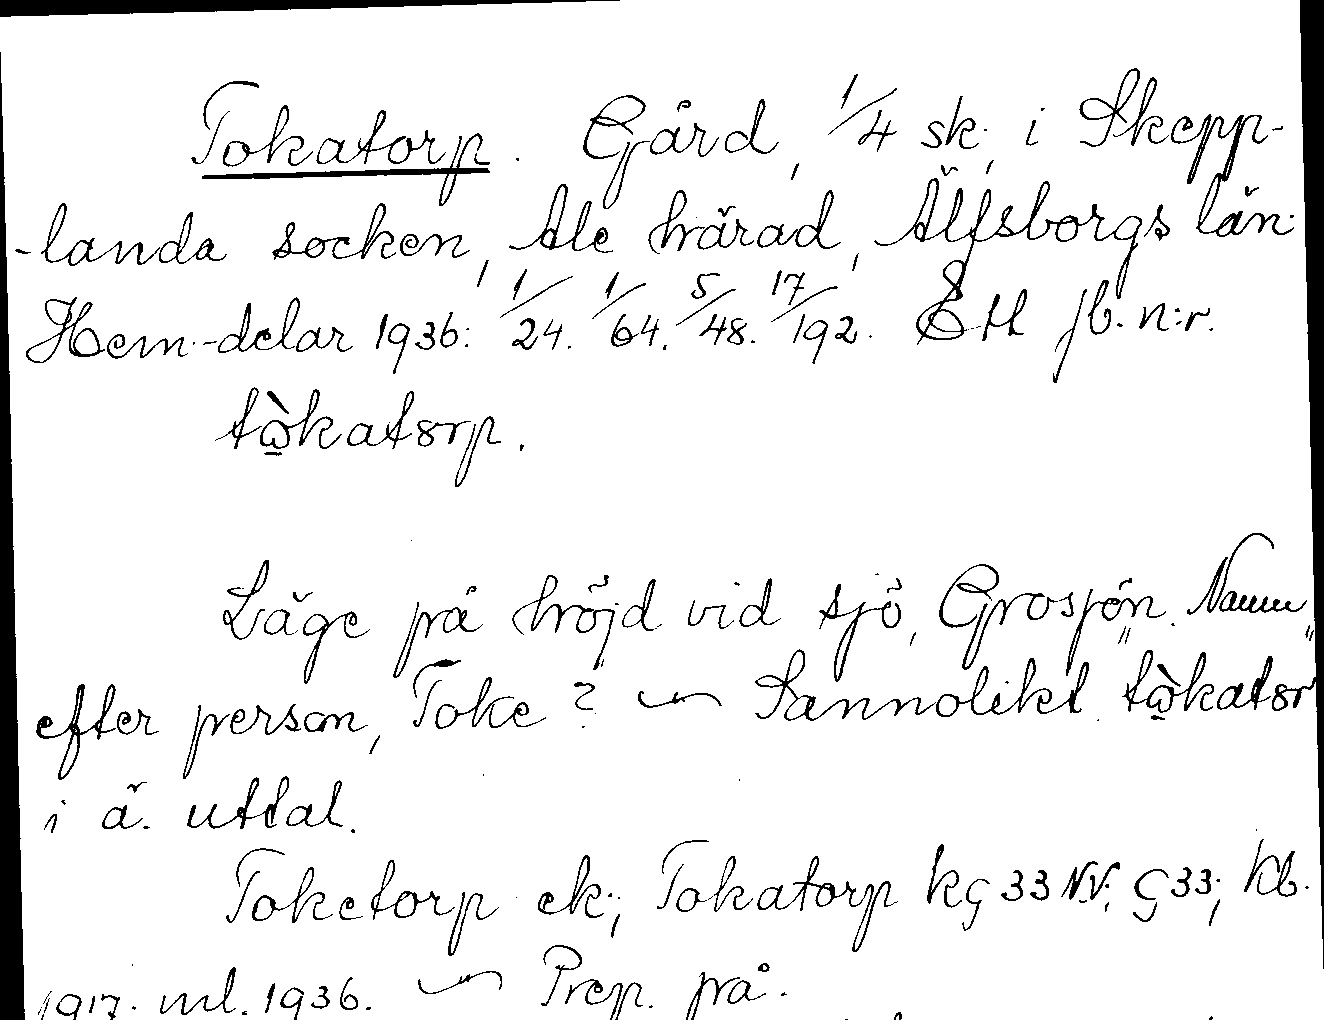 Tokatorp. Gård, 1/4 sk., i Skepp-
-landa socken, Ale härad, Älfsborgs län.
Hem.-delar 1936: 1/24. 1/64. 5/48. 17/192. Ett jb. n:r.
tὼ̲katsrp.
Läge på höjd vid sjö, Grosjön. Namn
efter person, Toke? ~ Sannolikt tὼ̲katsr
i ä. uttal.
Toketorp ek.; Tokatorp kç 33 NV. ç 33; kb.
1917. ml. 1936. ~ Prep. på.